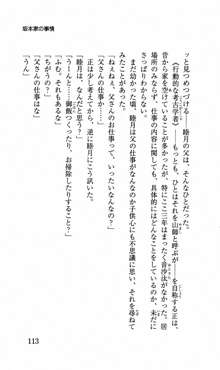 坂本家の事情
ッと見つめつづける――睦月の父は、そんなひとだった。
《行動的な考古学者》――もっとも、ひとはそれを山師と呼ぶが――を自称する正は、
昔から家を空けていることが多かったが、特にここ三年はまったく音沙汰がなかった。居
場所のみならず、仕事の内容に関しても、具体的にはどんなことをしているのか、未だに
さっぱりわからない。
まだ幼かった頃、睦月は父の仕事がなんなのか子供心にも不思議に思い、それを尋ねて
みたことがあった。
「ねぇねぇ、父さんのお仕事って、いったいなんなの？」
「父さんの仕事か……」
正は少し考えてから、逆に睦月にこう訊いた。
「睦月は、なんだと思う？」
「うーんと……御飯つくったり、お掃除したりすること？」
「ちがうの？」
「父さんの仕事はな」
「うん」
113